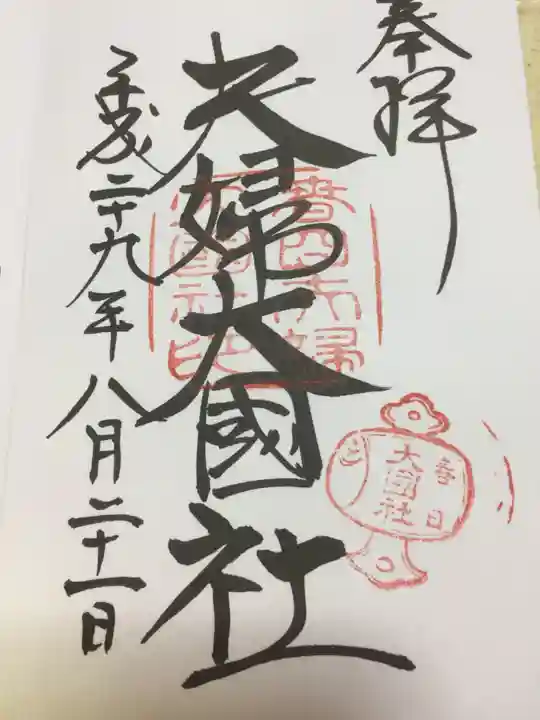 奉拝
夫婦大國社
平成二十九年八月二十一日
春日夫婦
大國社印
春日
大國社